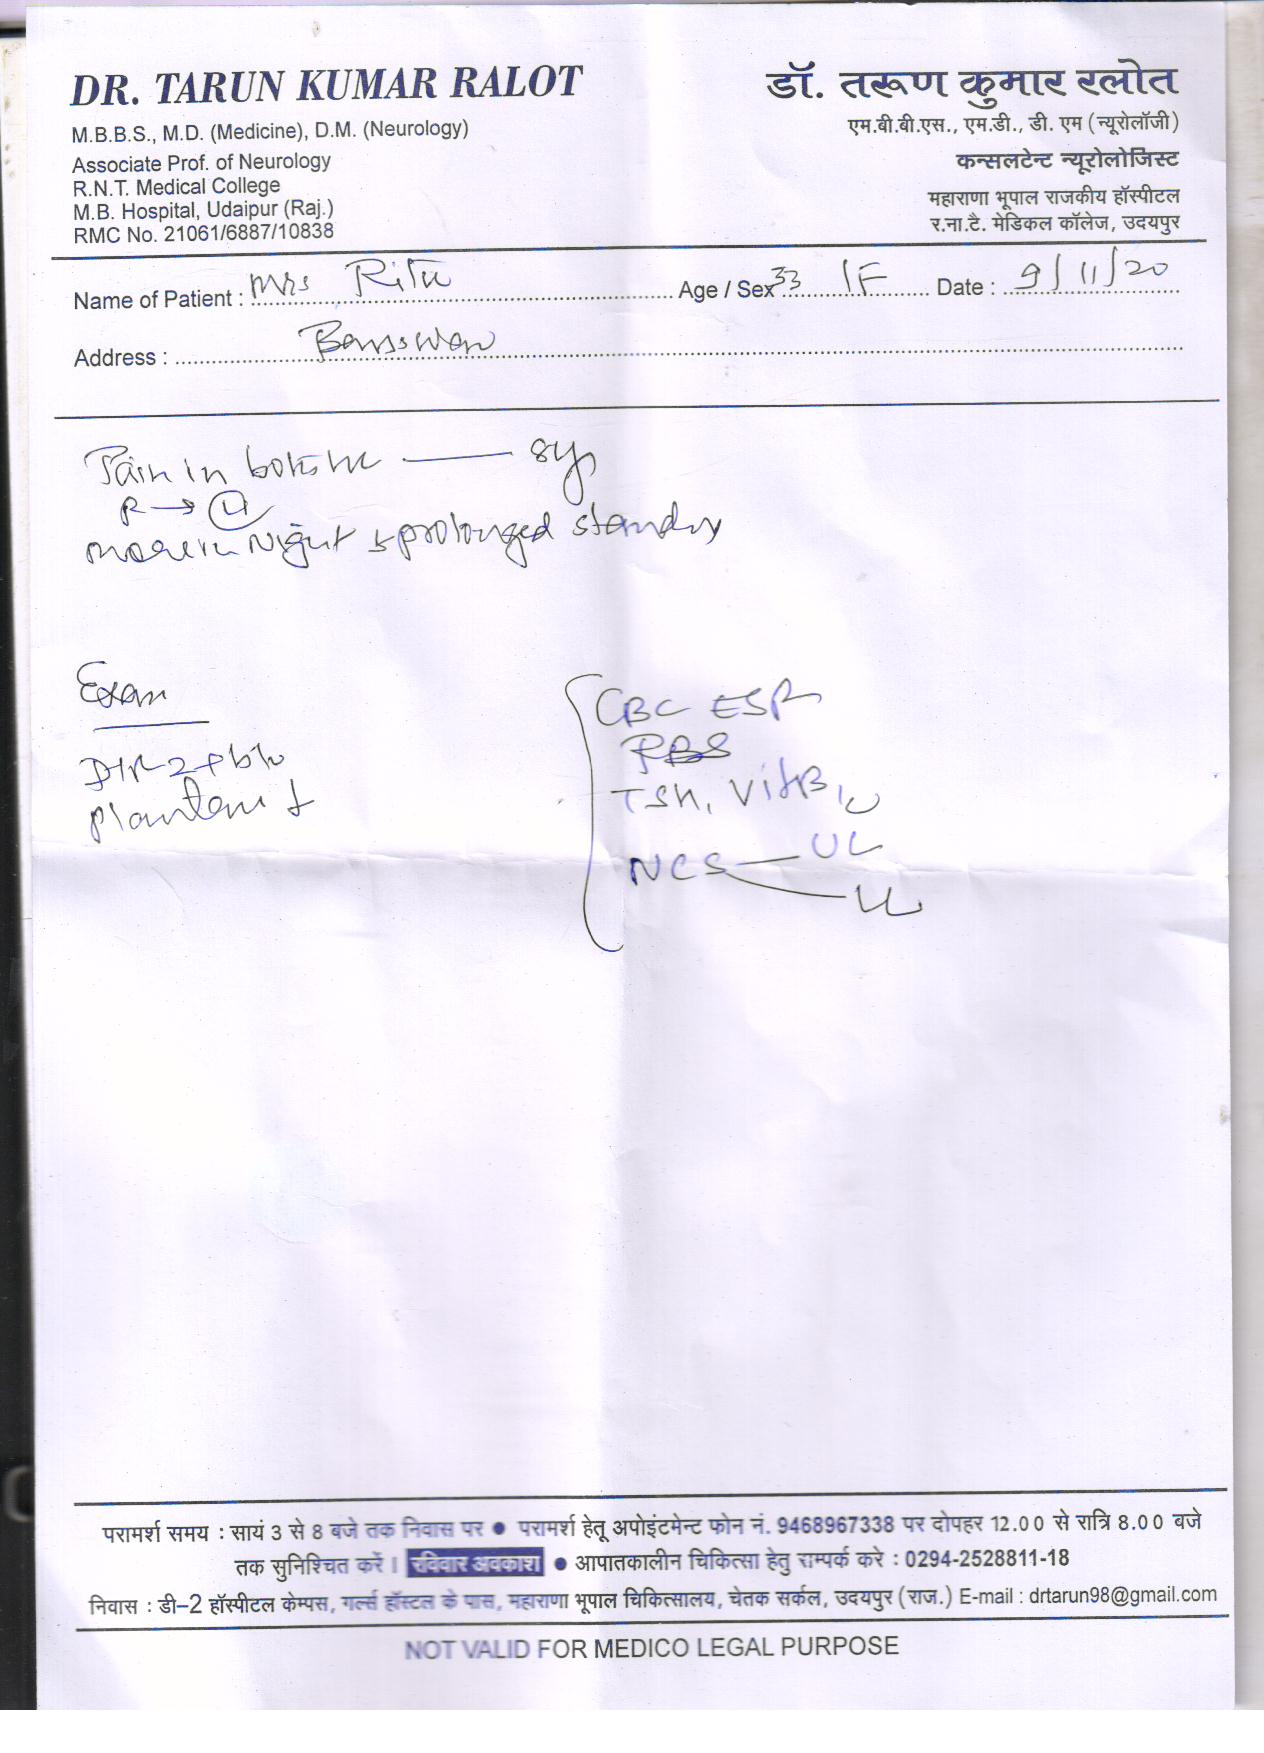 DR. TARUN KUMAR RALOT
M.B.B.S., M.D. (Medicine), D.M. (Neurology)
Associate Prof. of Neurology
R.N.T. Medical College
M.B. Hospital, Udaipur (Raj.)
RMC No. 21061/6887/10838
डॉ. तरूण कुमार रलोत
एम.बी.बी.एस., एम.डी., डी. एम (न्यूरोलॉजी)
कन्सलटेन्ट न्यूरोलोजिस्ट
महाराणा भूपाल राजकीय हॉस्पीटल
र.ना.टै. मेडिकल कॉलेज, उदयपुर
Name of Patient : Mrs Ritu Age / Sex 33 / F Date : 9/11/20
Address :
Pain in both 8y
R → L
more in Night prolonged standing
Exam
DTR 2+ b/l
CBC ESR
PBS
TSH, Vit B12
NCS — UL
LL
परामर्श समय : सायं 3 से 8 बजे तक निवास पर ● परामर्श हेतू अपोइंटमेन्ट फोन नं. 9468967338 पर दोपहर 12.00 से रात्रि 8.00 बजे
तक सुनिश्चित करें। रविवार अवकाश ● आपातकालीन चिकित्सा हेतु सम्पर्क करे : 0294-2528811-18
निवास : डी-2 हॉस्पीटल केम्पस, गर्ल्स हॉस्टल के पास, महाराणा भूपाल चिकित्सालय, चेतक सर्कल, उदयपुर (राज.) E-mail : drtarun98@gmail.com
NOT VALID FOR MEDICO LEGAL PURPOSE